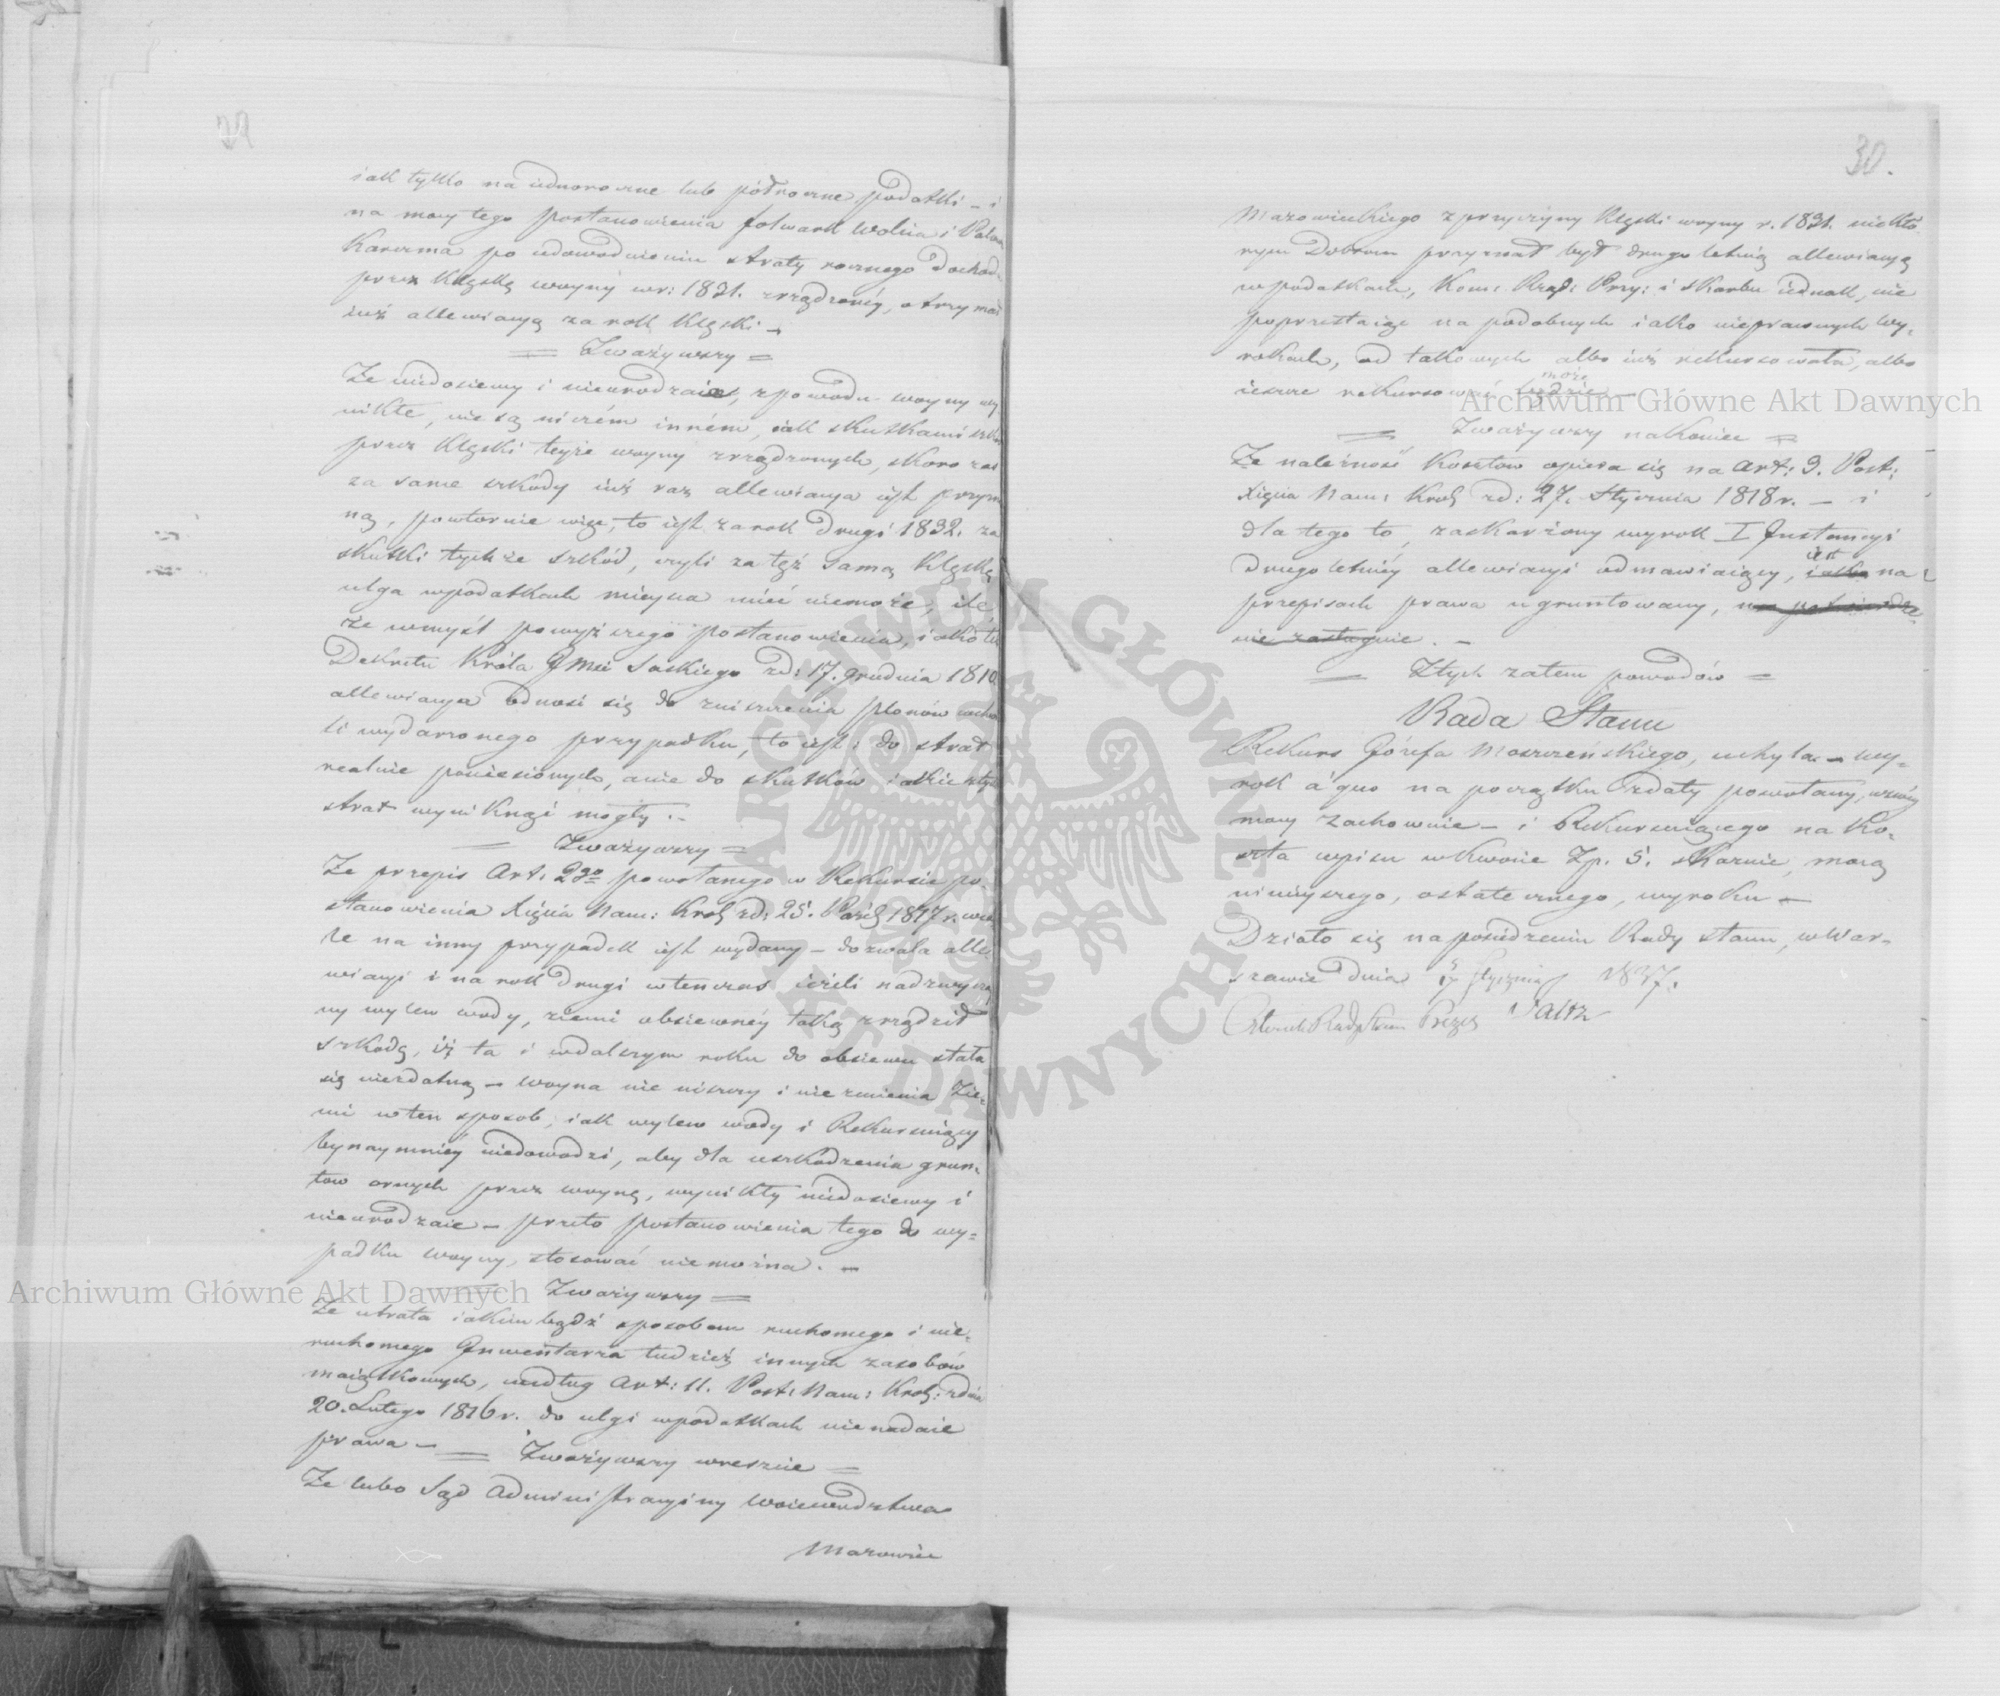 29
iak tylko na iednoroczne lub półroczne podatki – i
na mocy tego postanowienia folwark Wolica i
Karczma po udowodnieniu straty rocznego dochodu
przez klęskę woyny w r: 1831. zrządzonéy, otrzymał
iuż allewiacyą za rok klęski –
= Zważywszy =
Że niedosiewy i nieurodzaie, z powodu woyny wy
nikłe, nie są niczém inném, iak skutkami szkód
przez klęski teyże woyny zrządzonych, skoro zaś
za same szkody iuż raz allewiacya iest przyzna
ną, powtornie więc, to iest za rok drugi 1832. za
skutki tychże szkód, czyli za tęż samą klęskę
ulga w podatkach mieysca mieć niemoże, ile
że w myśl powyższego postanowienia, iako też
Dekretu Króla Jmci Saskiego z d: 17. Grudnia 1810
allewiacya odnosi się do zniszczenia plonów
li wydarzonego przypadku, to iest: do strat
realnie poniesionych, a nie do skutków iakie z tych
strat wyniknąć mogły. –
= Zważywszy =
Że przepis Art: 2go powołanego w Rekursie po-
stanowienia Xięcia Nam: Król: z d: 25. Paźd: 1817 r.
le na inny przypadek iest wydany – dozwala alle-
wiacyi i na rok drugi wtenczas ieżeli nadzwyczay
ny wylew wody, ziemi obsiewnéy taką zrządził
szkodę, iż ta i w dalszym roku do obsiewu stała
się niezdatną – woyna nie niszczy i nie zmienia Zie-
mi w ten sposob, iak wylew wody i Rekursuiący
bynaymniéy niedowodzi, aby dla uszkodzenia grun-
tow ornych przez woynę, wynikły niedosiewy i
nieurodzaie – przeto postanowienia tego do wy-
padku woyny, stosować niemożna. –
= Zważywszy =
Że utrata iakim bądź sposobem ruchomego i nie-
ruchomego Inwentarza tudzież innych zasobów
maiątkowych, według Art: 11. Post: Nam: Król: z dnia
20. Lutego 1816 r. do ulgi w podatkach nie nadaie
prawa – = Zważywszy wreszcie =
Że lubo Sąd Administracyiny Woiewództwa
Mazowiec
30.
Mazowieckiego z przyczyny klęski woyny r. 1831. niektó-
rym Dobrom przyznał był drugoletnią allewiacyą
w podatkach, Kom: Rząd: Przy: i Skarbu iednak, nie
poprzestaiąc na podobnych iako nieprawnych wy-
rokach, od takowych albo iuż rekursowała, albo
ieszcze rekursować będzie – może
= Zważywszy nakoniec =
Że należność kosztow opiera się na Art: 3. Post:
Xięcia Nam: Król: z d: 27. Stycznia 1818 r. – i
dla tego to, zaskarżony wyrok I Instancyi
drugoletniéy allewiacyi odmawiaiący, iako iest na
przepisach prawa ugruntowany, na potwierdze-
nie zasługuie. –
= Z tych zatem powodów =
Rada Stanu
Rekurs Józefa Moszczeńskiego, uchyla – wy-
rok a'quo na początku z daty powołany, w swéy
mocy zachownie – i Rekursuiącego na ko-
szta wpisu w kwocie Zp. 5. skazuie, mocą
ninieyszego, ostatecznego, wyroku –
Działo się na posiedzeniu Rady Stanu, w War-
szawie dnia 5/17 Stycznia 1837.
Członek Rady Stanu Prezes
Archiwum Główne Akt Dawnych
Archiwum Główne Akt Dawnych
ARCHIWUM GŁÓWNE AKT DAWNYCH